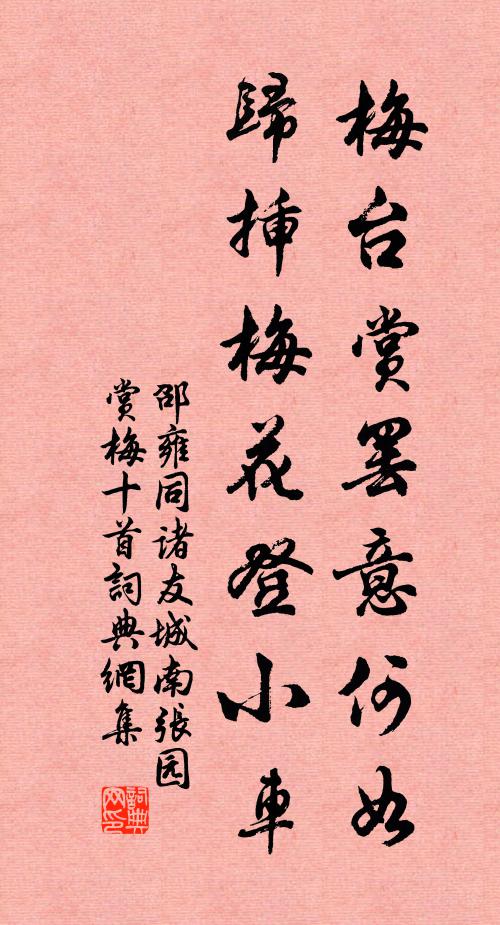 梅台賞罢意何如
歸挿梅花登小車
邵雍同诸友城南張园
赏梅十首詞典網集
詞典
网印